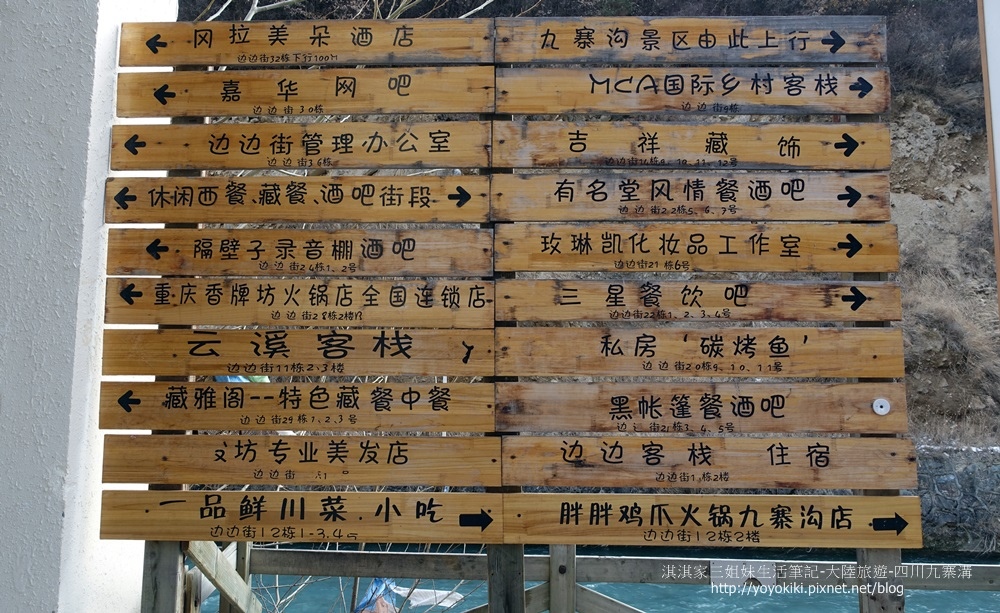 冈拉美朵酒店
边边街32栋下行100M
九寨沟景区由此上行
嘉华网吧
边边街30栋
MCA国际乡村客栈
边边街9栋
边边街管理办公室
边边街36栋
吉祥藏饰
边边街14栋9、10、11、12号
休闲西餐、藏餐、酒吧街段
有名堂风情餐酒吧
边边街22栋5、6、7号
隔壁子录音棚酒吧
边边街24栋1、2号
玫琳凯化妆品工作室
边边街21栋6号
重庆香牌坊火锅店全国连锁店
边边街28栋2楼
三星餐饮吧
边边街22栋1、2、3、4号
云溪客栈
边边街11栋2-3楼
私房‘碳烤鱼’
边边街20栋9、10、11号
藏雅阁--特色藏餐中餐
边边街29栋1、2、3号
黑帐篷餐酒吧
边边街21栋3、4、5号
坊专业美发店
边边街
边边客栈 住宿
边边街1栋2楼
一品鲜川菜.小吃
边边街12栋1-3.4
胖胖鸡爪火锅九寨沟店
边边街12栋2楼
淇淇家三姐妹生活筆記-大陸旅遊-四川九寨溝
http://yoyokiki.pixnet.net/blog